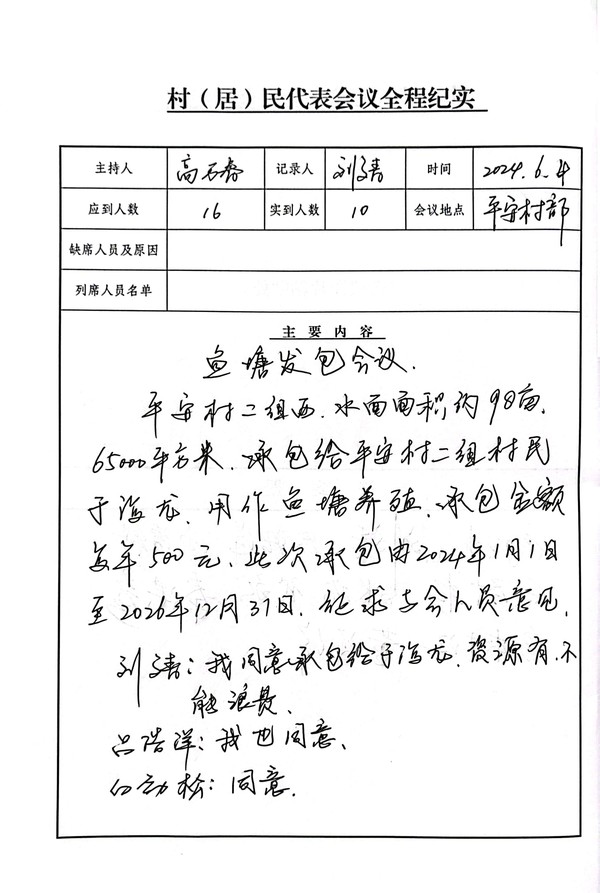 村（居）民代表会议全程纪实
主持人 高石春 记录人 刘涛 时间 2024.6.4
应到人数 16 实到人数 10 会议地点 平安村部
缺席人员及原因
列席人员名单
主要内容
鱼塘发包会议.
平安村二组西.水面面积约98亩.
65000平方米.承包给平安村二组村民
于海龙.用作鱼塘养殖.承包金额
每年500元.此次承包由2024年1月1日
至2026年12月31日.征求与会人员意见.
刘涛：我同意承包给于海龙.资源有.不
能浪费.
吕浩洋：我也同意.
白劲松：同意.